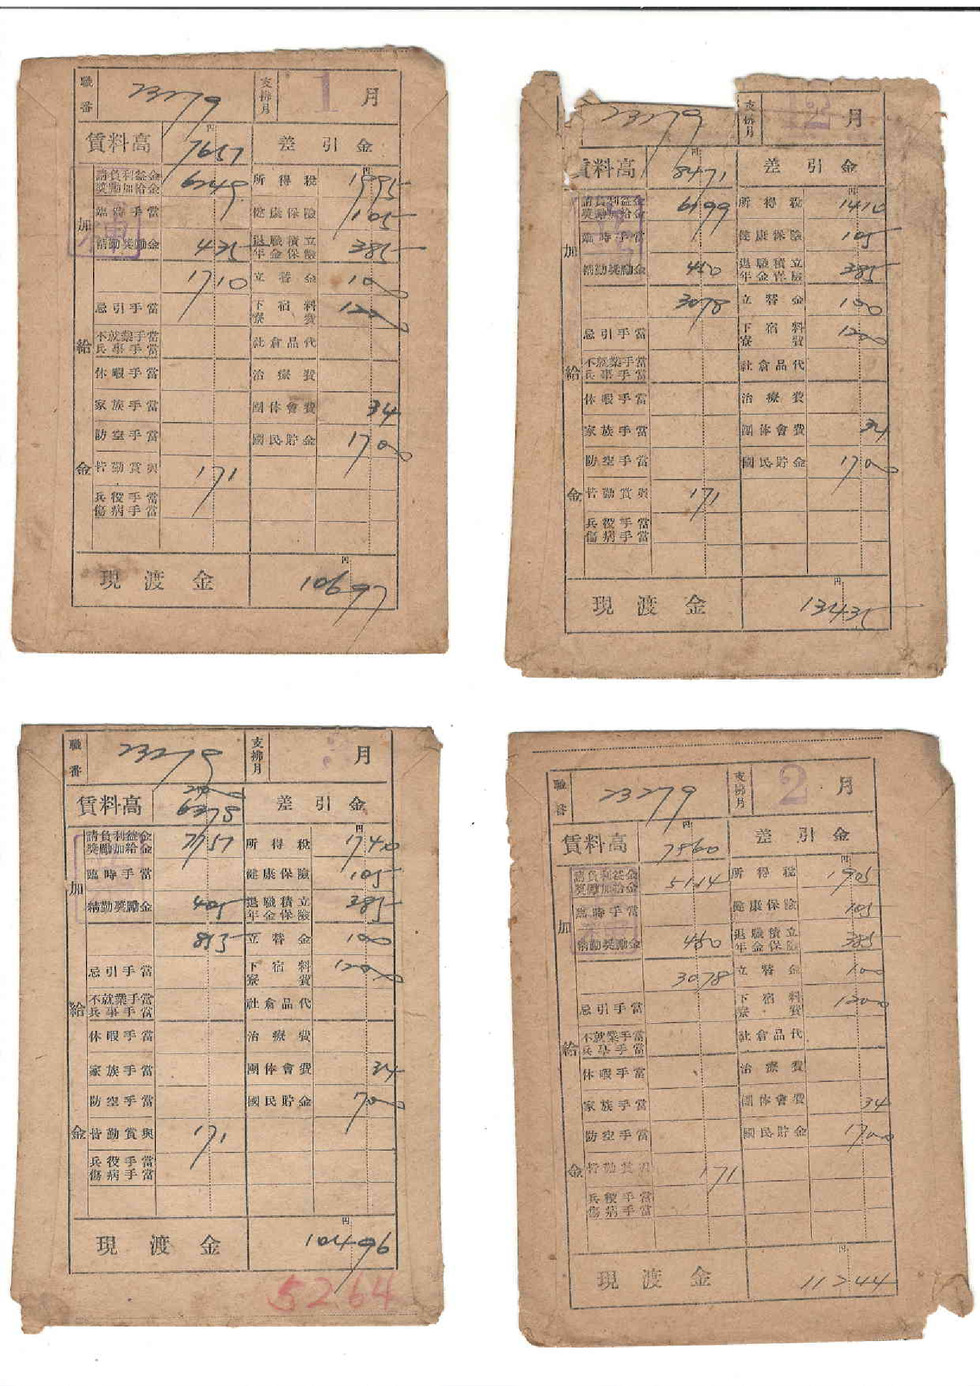 職番 23279 支拂月 1 月
賃料高 7651 差引金
加給金
請負利益金 奬勵加給金 6249 所得稅 1995
臨時手當 健康保險 105
精勤奬勵金 435 退職積立 年金保險 385
1710 立替金 100
忌引手當 下宿料 寮費 1200
不就業手當 兵事手當 社倉品代
休暇手當 治療費
家族手當 團体會費 34
防空手當 國民貯金 1700
皆勤賞與 171
兵役手當 傷病手當
現渡金 10697
23279 支拂月 12 月
賃料高 8471 差引金
加給金
請負利益金 奬勵加給金 6199 所得稅 1410
臨時手當 健康保險 105
精勤奬勵金 450 退職積立 年金保險 385
3078 立替金 100
忌引手當 下宿料 寮費 1200
不就業手當 兵事手當 社倉品代
休暇手當 治療費
家族手當 團体會費 34
防空手當 國民貯金 1700
皆勤賞與 171
兵役手當 傷病手當
現渡金 13435
職番 23279 支拂月 月
賃料高 6378 差引金
加給金
請負利益金 奬勵加給金 所得稅 1740
臨時手當 健康保險 105
精勤奬勵金 405 退職積立 年金保險 385
立替金 100
忌引手當 下宿料 寮費 1200
不就業手當 兵事手當 社倉品代
休暇手當 治療費
家族手當 團体會費 34
防空手當 國民貯金 700
皆勤賞與 171
兵役手當 傷病手當
現渡金 10496
5264
職番 23279 支拂月 2 月
賃料高 7860 差引金
加給金
請負利益金 奬勵加給金 5114 所得稅 1905
臨時手當 健康保險 105
精勤奬勵金 450 退職積立 年金保險 385
3078 立替金 100
忌引手當 下宿料 寮費 1200
不就業手當 兵事手當 社倉品代
休暇手當 治療費
家族手當 團体會費 34
防空手當 國民貯金 1700
皆勤賞與 171
兵役手當 傷病手當
現渡金 11244